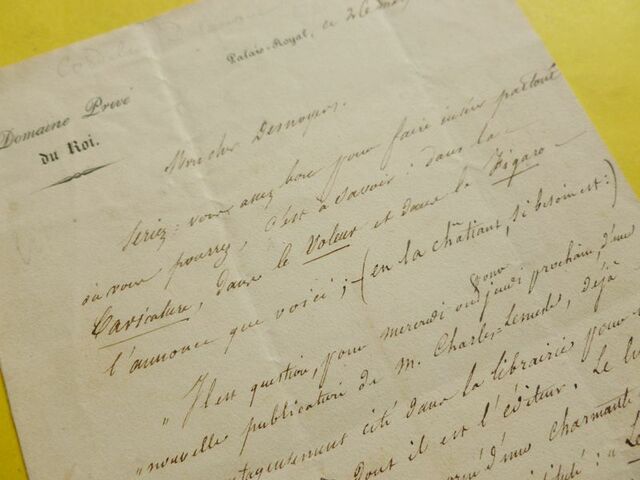 Palais-Royal, ce
Domaine Privé
du Roi.
Mon cher Desnoyers.
Seriez-vous assez bon pour faire insérer partout
où vous pourrez, c'est à savoir: dans la
Caricature, dans le Voleur et dans le Figaro
l'annonce que voici; (en la châtiant, si besoin est:)
"Il est question, pour mercredi ou pour jeudi prochain, d'une
"nouvelle publication de M. Charles-Lemesle, déjà
cité dans la librairie pour
dont il est l'éditeur. Le
d'une charmante